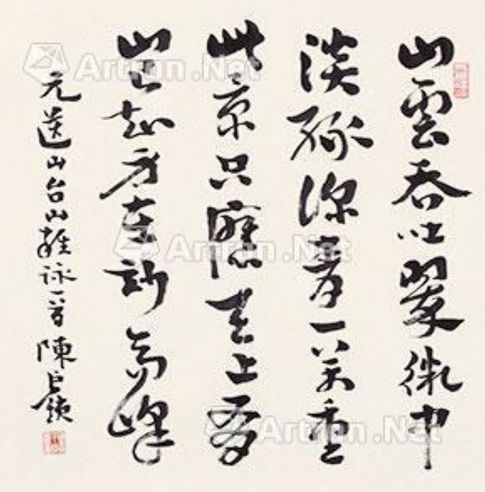 山雲吞吐翠微中
淡綠深青一萬重
此景只應天上有
豈知身在妙高峰
元遺山台山雜詠一首 陳巨鎖
Artron.Net
Artron.Net
Artron.Net
Artron.Net
Artron.Net
Artron.Net